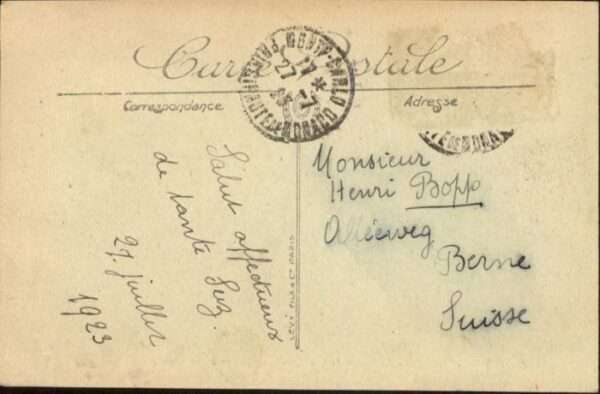 Carte Postale
Correspondance
Adresse
MONTE-CARLO
PRINCIPAUTÉ DE MONACO
17
27 -7
23
Salut affectueux
de tante Suz.
27. juillet
1923
Monsieur
Henri Bopp
Berne
Suisse
LÉVY FILS & Cie PARIS